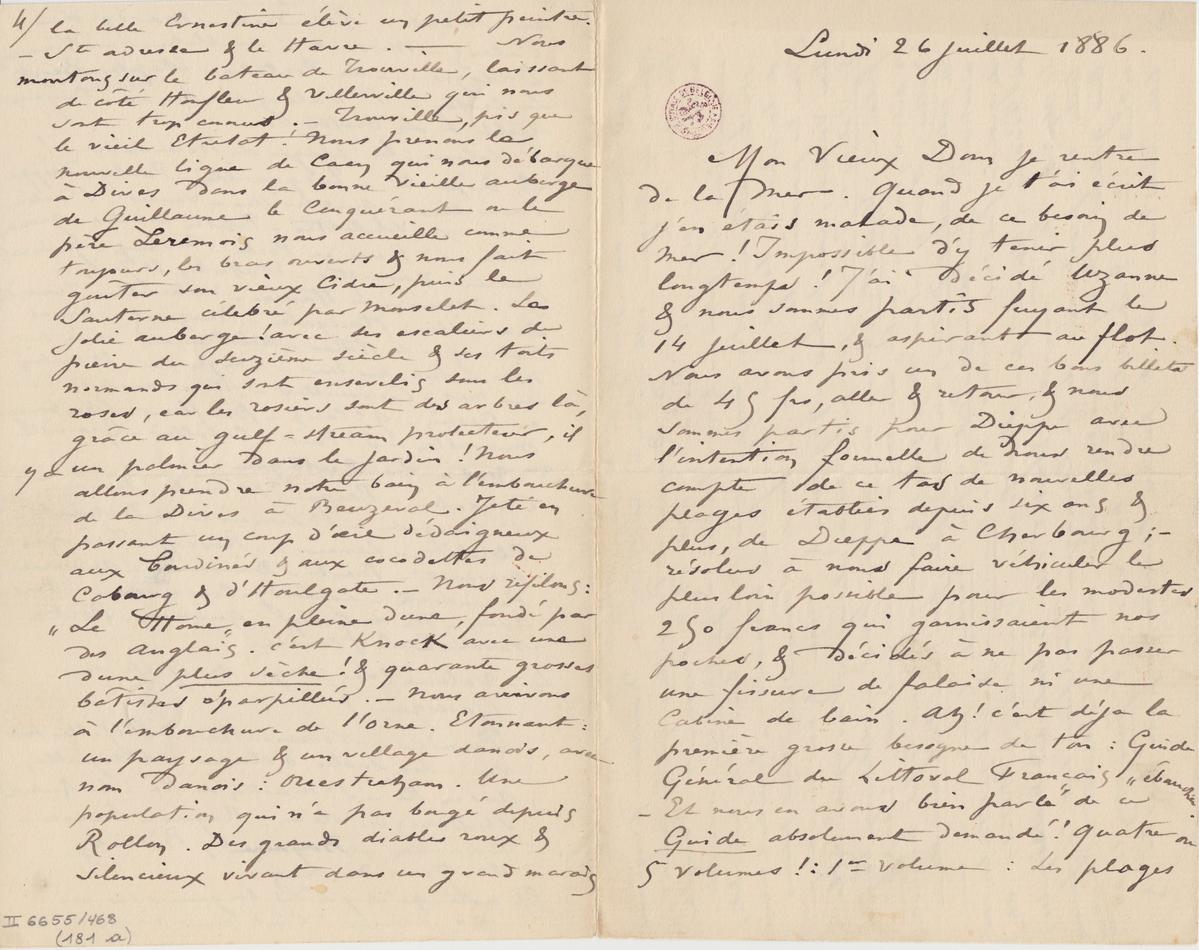 4/ la belle Ernestine élève un petit peintre.
- Ste adresse & le Havre. — Nous
montons sur le bateau de Trouville, laissant
de côté Honfleur & Villerville qui nous
sont trop connus. - Trouville, pis que
le vieil Etretat! Nous prenons la
nouvelle ligne de Caen qui nous débarque
à Dives dans la bonne vieille auberge
de Guillaume le Conquérant où le
père Leremois nous accueille comme
toujours, les bras ouverts & nous fait
goûter son vieux Cidre, puis le
Sauterne célébré par Monselet. La
jolie auberge! avec ses escaliers de
pierre du seizième siècle & ses toits
normands qui sont ensevelis sous les
roses, car les rosiers sont des arbres là,
grâce au gulf-stream protecteur, il
y a un palmier dans le jardin! Nous
allons prendre notre bain à l'embouchure
de la Dives à Beuzeval. Jeté en
passant un coup d'œil dédaigneux
aux Boudinés & aux cocodettes de
Cabourg & d'Houlgate. - Nous refilons:
"Le Home" en pleine dune, fondé par
des Anglais. c'est Knock avec une
dune plus sèche! & quarante grosses
batisses éparpillées. - Nous arrivons
à l'embouchure de l'Orne. Etonnant:
un paysage & un village danois, avec
nom danois: Ouestreham. Une
population qui n'a pas bougé depuis
Rollon. Des grands diables roux &
silencieux vivant dans un grand marais
II 6655/468
(181 a)
Lundi 26 juillet 1886.
Mon Vieux Dom je rentre
de la mer. Quand je t'ai écrit
j'en étais malade, de ce besoin de
mer! Impossible d'y tenir plus
longtemps! J'ai décidé Uzanne
& nous sommes partis fuyant le
14 juillet, & aspirant au flot.
Nous avons pris un de ces bons billets
de 45 frs, aller & retour, & nous
sommes partis pour Dieppe avec
l'intention formelle de nous rendre
compte de ce tas de nouvelles
plages établies depuis six ans &
plus, de Dieppe à Cherbourg; -
résolus à nous faire véhiculer le
plus loin possible pour les modestes
250 francs qui garnissaient nos
poches, & décidés à ne pas passer
une fissure de falaise ni une
Cabine de bain. Ah! c'est déja la
première grosse besogne de ton: Guide
Général du Littoral Français "ébauchée
- Et nous en avons bien parlé" de ce
Guide absolument demandé! quatre ou
5 volumes!: 1er volume: Les plages